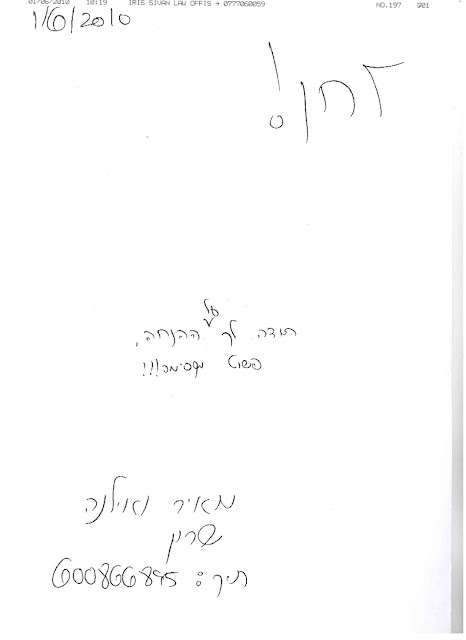 01/06/2010 10:19 IRIS SIVAN LAW OFFIS → 0777060059 NO.197 001
1/6/2010
לחן!
תודה לך על ההנחה,
פשוט מקסימה!!!
מאיר ואילנה
שרון
תיק: 600866895